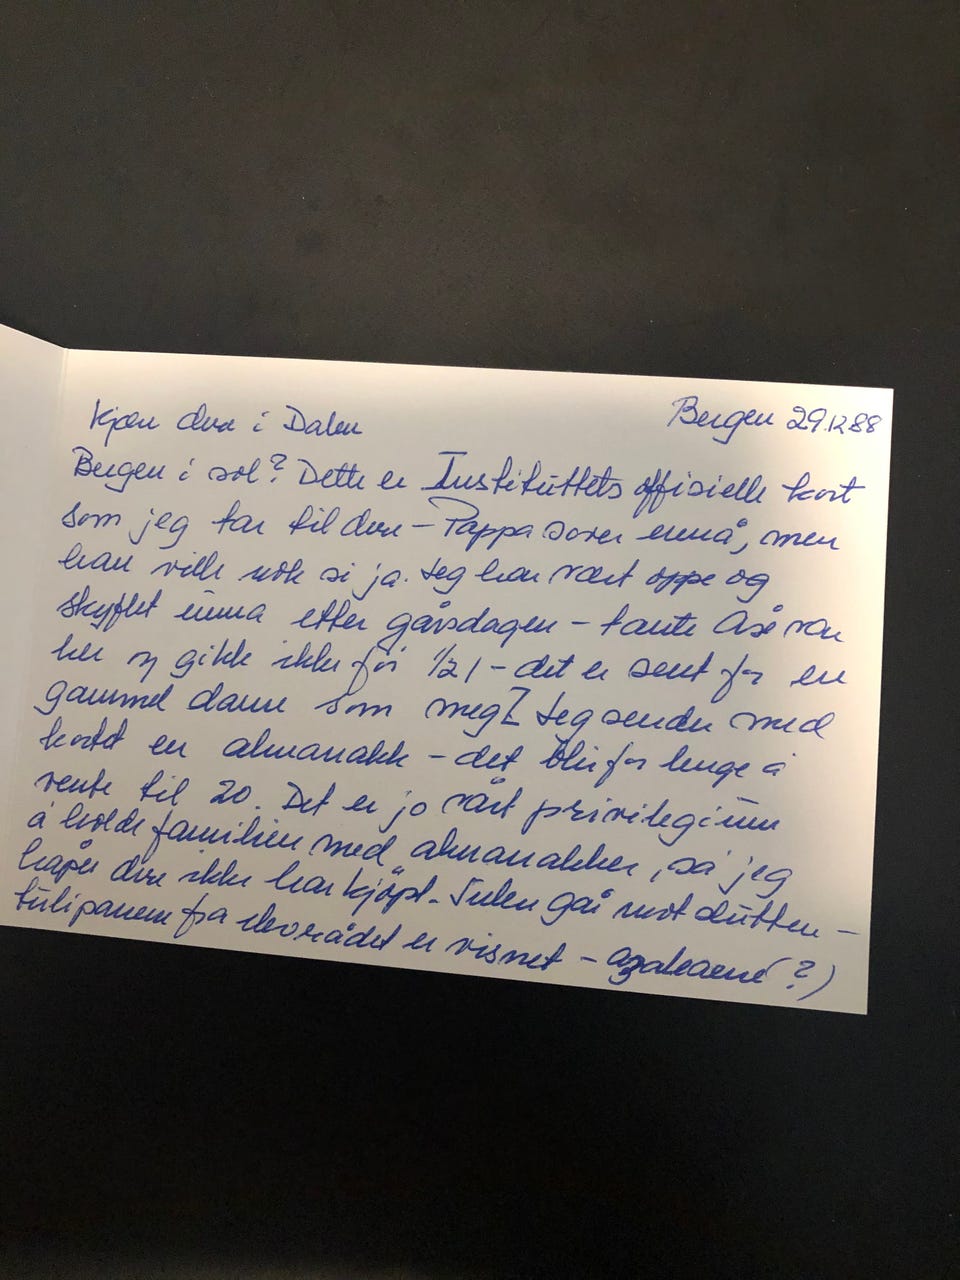 Kjære dere i Dalen
Bergen 29.12.88
Bergen i sol? Dette er Instituttets offisielle kort
som jeg tar til dere – Pappa sover ennå, men
han ville nok si ja. Jeg har vært oppe og
skyflet unna etter gårsdagen – tante Åse var
her og gikk ikke før 1/21 – det er sent for en
gammel dame som meg! Jeg sender med
kortet en almanakk – det blir for lenge å
vente til 20. Det er jo vårt privilegium
å holde familien med almanakker, så jeg
håper dere ikke har kjøpt. Julen går mot slutten –
tulipanene fra elevrådet er visnet – azaleaene (?)